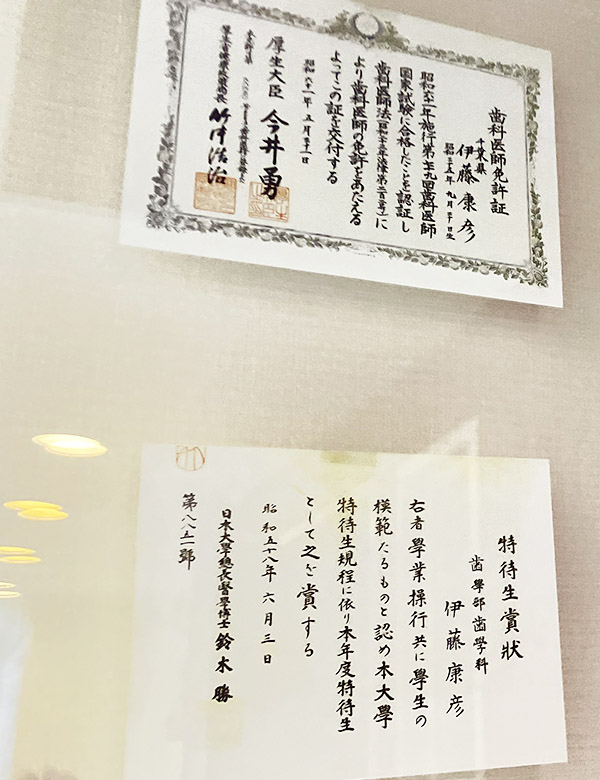 歯科医師免許証
千葉県
伊藤康彦
昭和三十五年九月二十日生
昭和六十一年施行第七十九回歯科医師
国家試験に合格したことを認証し
歯科医師法(昭和二十三年法律第二百二号)に
より歯科医師の免許をあたえる
よってこの証を交付する
昭和六十一年五月二十一日
厚生大臣 今井勇
竹中浩治
特待生賞狀
歯學部歯學科
伊藤康彦
右者學業操行共に學生の
模範たるものと認め本大學
特待生規程に依り本年度特待生
として之を賞する
昭和五十八年六月三日
日本大學總長醫學博士 鈴木勝
第八八五一號